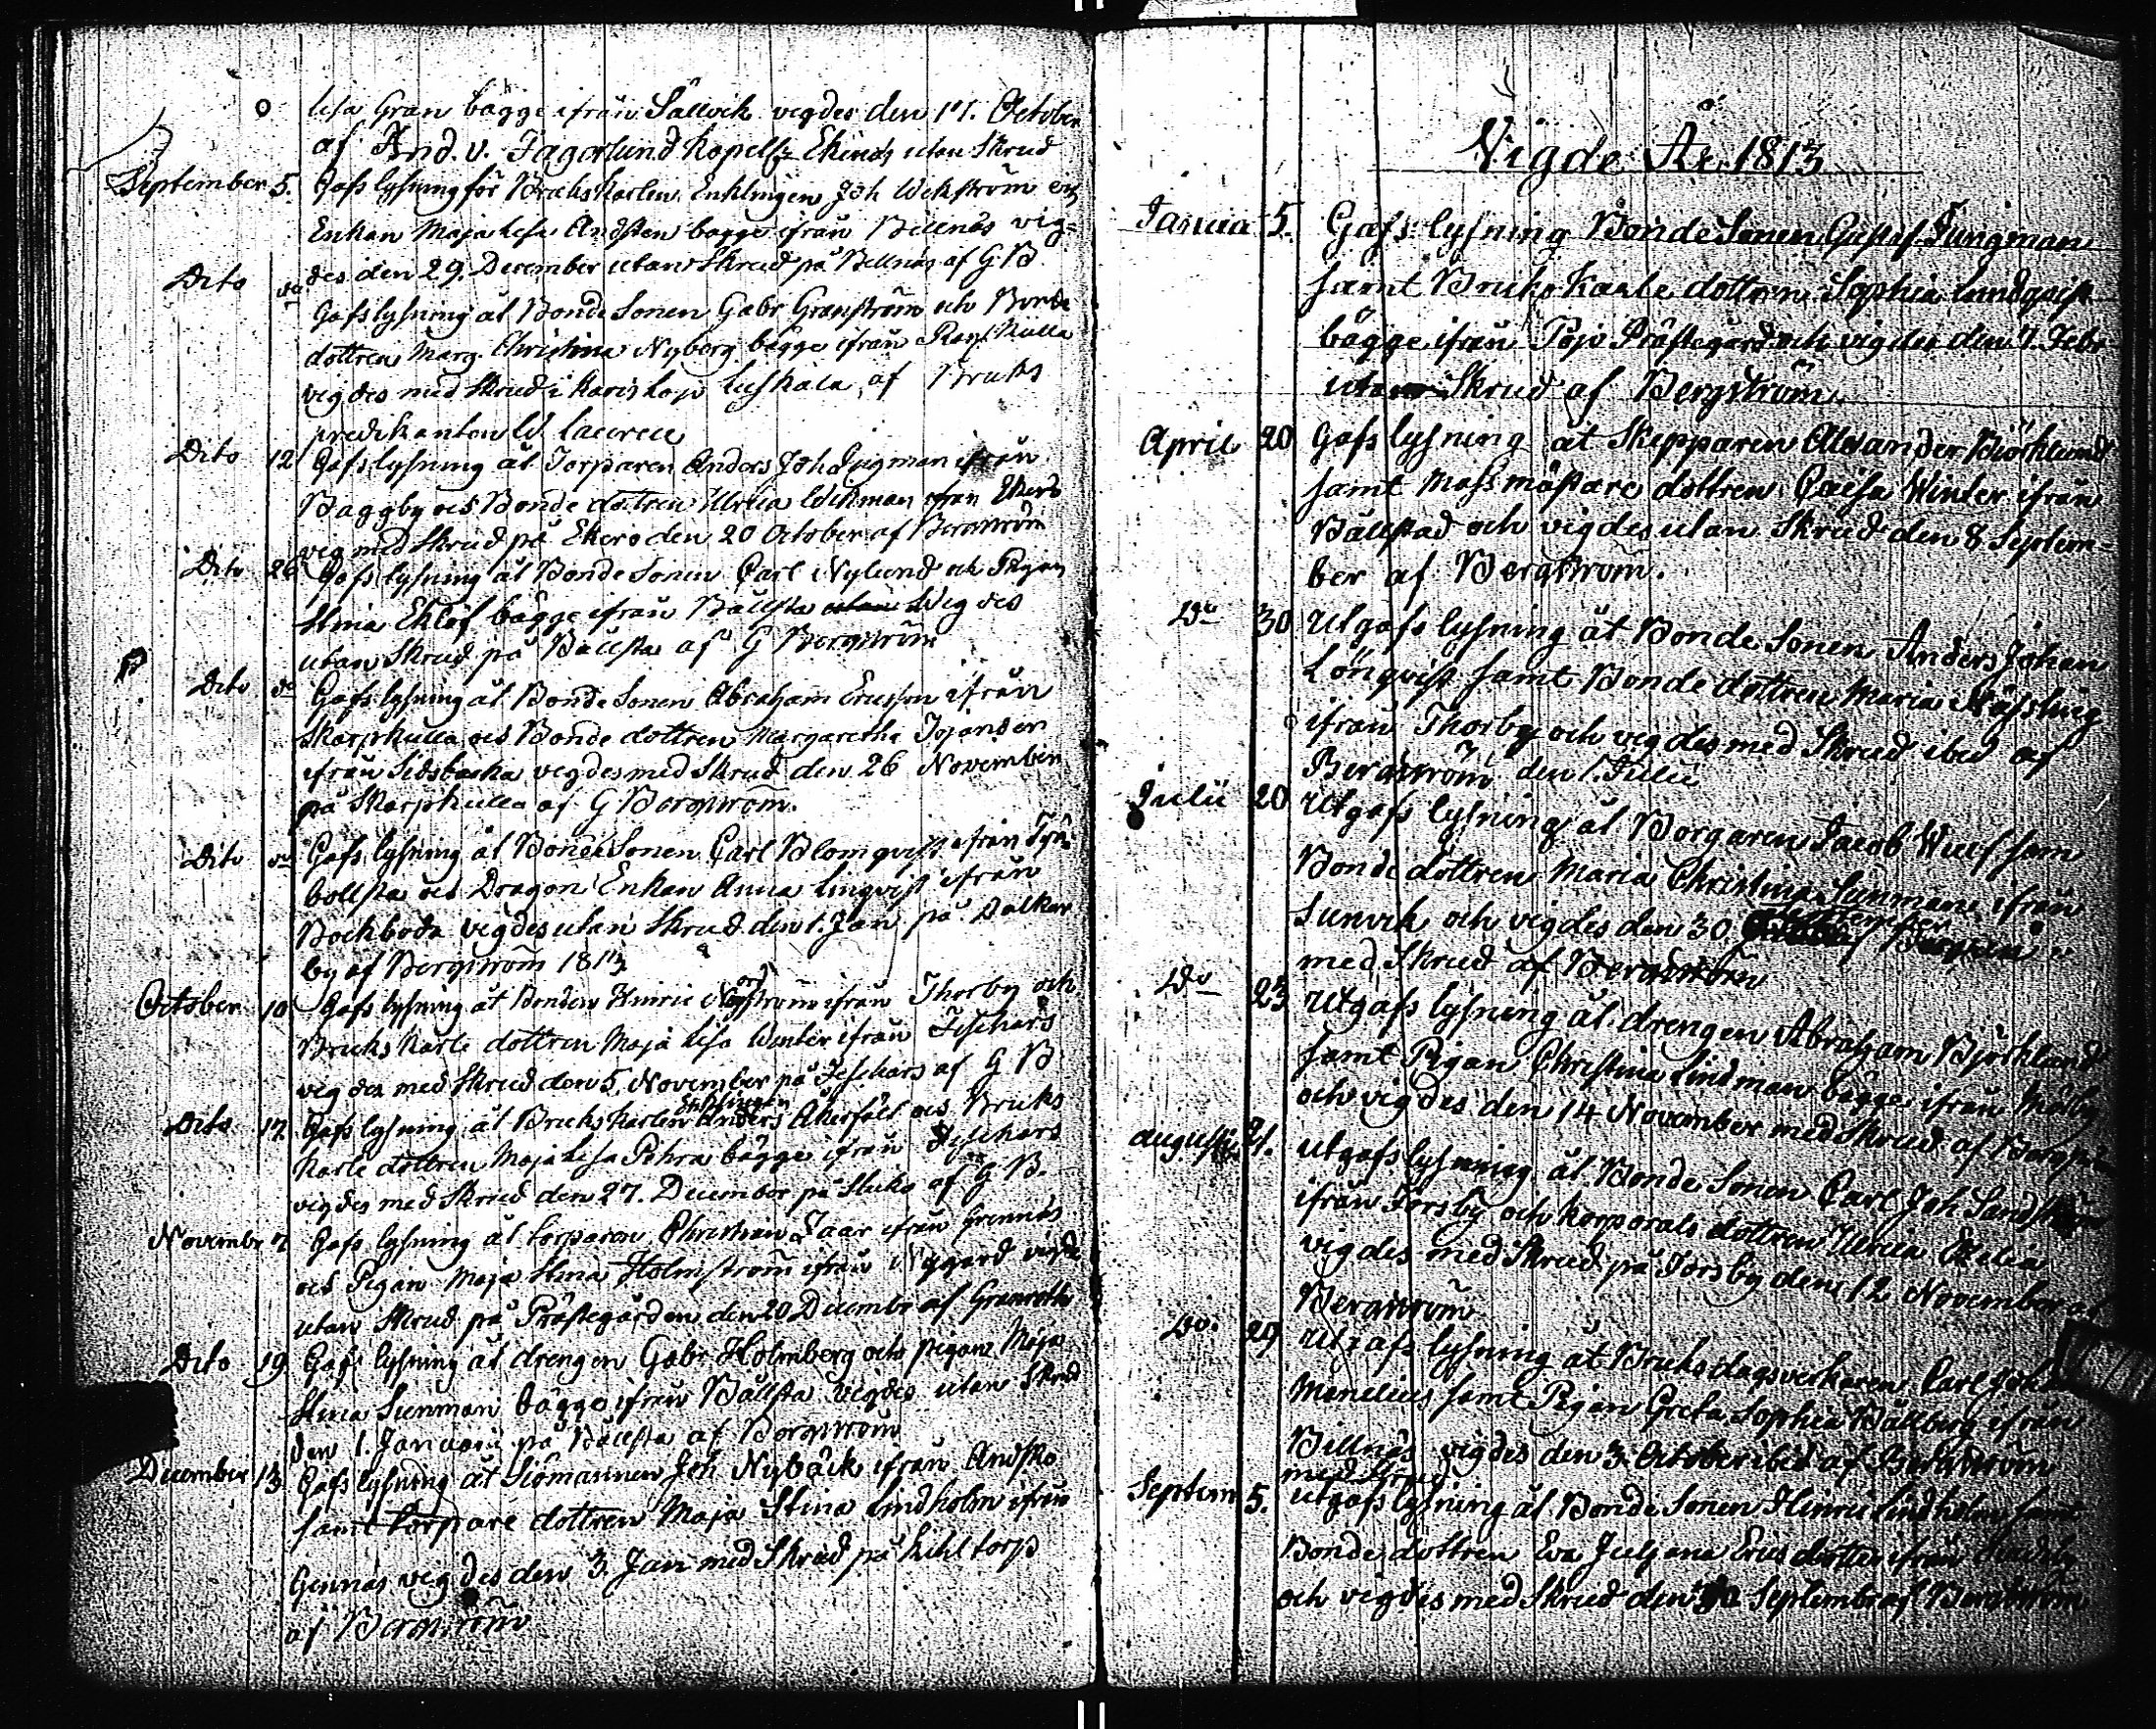 Lisa Gran bägge ifrån Sällvik vigdes den 17. October
af And. v. Fagerlund Kapell: Ekenäs utan Skrud
September 5. Gafs lysning för Brukskarlen Enklingen Joh Wekström och
Enkan Maja Lisa Andsten bägge ifrån Billnäs vig=
des den 29. December utan Skrud på Billnäs af G. B
Dito do Gafs lysning åt Bonde Sonen Gabr Granström och Bonde
dottren Marg. Christina Nyberg bägge ifrån
vigdes med Skrud i Karis Lojo af Bruks
predikanten W.
Dito 12 Gafs lysning åt Torparen Anders Joh ifrån
Baggby och Bonde dottren Ulrica Wikman ifrån Ekerö
vig med Skrud på Ekerö den 20 October af Bergström
Dito 26 Gafs lysning åt Bonde Sonen Carl Nylund och Pigan
Stina Eklöf bägge ifrån Bällsta Vigdes
utan Skrud på Bällsta af G Bergström
Dito do Gafs lysning åt Bonde Sonen Abraham Ericsson ifrån
Skarpkulla och Bonde dottren Margaretha
ifrån Sidsbacka vigdes med Skrud den 26 November
på Skarpkulla af G Bergström.
Dito do Gafs lysning åt Bonde Sonen Carl Blomqvist ifrån
bollsta och Dragon Enkan Anna Linqvist ifrån
Bockboda vigdes utan Skrud den 1. Jan på Dalkar
by af Bergström 1813
October 10 Gafs lysning åt Bonden Hinric ifrån Thorby och
Bruks Karls dottren Maja Lisa Winter ifrån Fischars
vigdes med Skrud den 5. November på Fischars af G B
Dito 17. Gafs lysning åt Bruks Karlen Enklingen Anders Åkerfält och Bruks
Karls dottren Maja Lisa Pihra bägge ifrån Fischars
vigdes med Skrud den 27. December på af G B.
Novembr 7 Gafs lysning åt torparen Christian Zaar ifrån Grennäs
och Pigan Maja Stina Holmström ifrån Nygård vigde
utan Skrud på Prästegården den 20 Decembr af Granroth
Dito 19 Gafs lysning åt drengen Gabr Holmberg och pigan Maja
Stina Sunman bägge ifrån Bällsta vigdes utan Skrud
den 1. Januarii på Bällsta af Bergström
December 13. Gafs lysning åt Siömannen Joh Nybäck ifrån
samt torpare dottren Maja Stina Lindholm ifrån
Gennäs vigdes den 3. Jan med Skrud på
af Bergström
Vigde År 1813
Janua 5. Gafs lysning Bonde Sonen Gustaf Jungman
samt Bruks Karls dottren Sophia Lundqvist
bägge ifrån Pojo Prästegård och vigdes den 7. Febr
utan Skrud af Bergström
April 20 Gafs lysning åt Skepparen Alexander Björklund
samt Massmästare dottren Caisa Winter ifrån
Bällstad och vigdes utan Skrud den 8 Septem=
ber af Bergström.
Do 30 Utgafs lysning åt Bonde Sonen Anders Johan
Lönqvist samt Bonde dottren Maria
ifrån Thorby och vigdes med Skrud ibid af
Bergström den 1. Julii
Julii 20 Utgafs lysning åt Borgaren Jacob Wulf sam
Bonde dottren Maria Christina Sunman ifrån
Sunvik och vigdes den 30. September
med Skrud af Bergström
Do 23 Utgafs lysning åt drengen Abraham Björklund
samt Pigan Christina Lindman bägge ifrån Mörby
och vigdes den 14 November med Skrud af Bergst
augustii 21. Utgafs lysning åt Bonde Sonen Carl Joh Sandström
ifrån Forsby och Korporals dottren Ulrica
vigdes med Skrud på Forsby den 12 November af
Bergström
Do 29 Utgafs lysning åt Bruksdagsverkaren Carl Joh
Manelius samt Pigan Greta Sophia Wallberg ifrån
Billnäs vigdes den 3. October ibid af Bergström
med Skrud
Septem 5. Utgafs lysning åt Bonde Sonen Hinric Lindholm samt
Bonde dottren Eva Juljana Erics dotter ifrån
och vigdes med Skrud den 30 September af Bergström